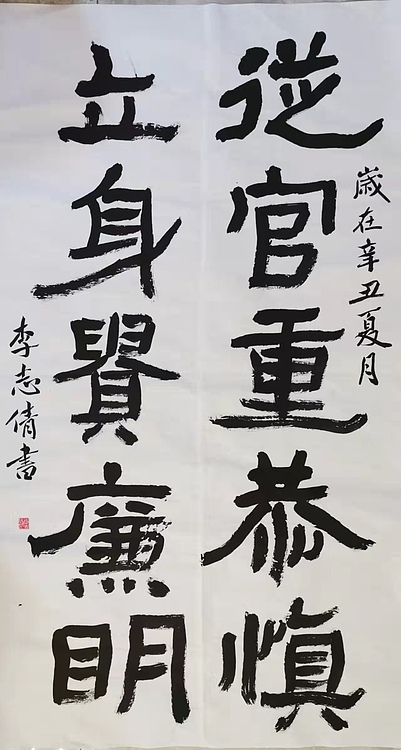 歲在辛丑夏月
從官重恭慎
立身貴廉明
李志倩書